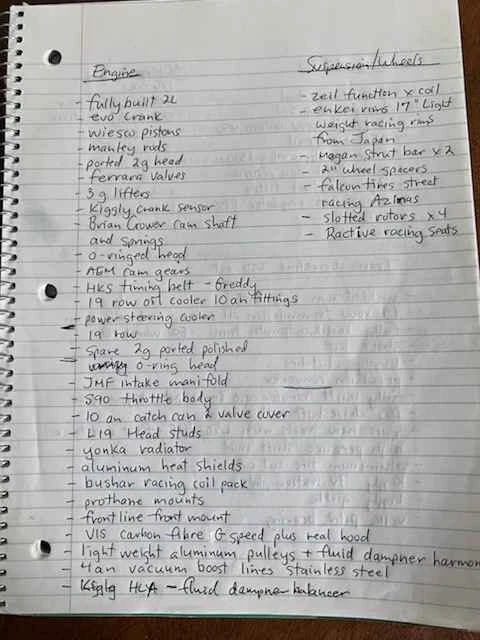 Engine
- fully built 2L
- evo crank
- wiesco pistons
- manley rods
- ported 2g head
- ferrara valves
- 3g lifters
- Kiggly crank sensor
- Brian Crower cam shaft
and springs
- o-ringed head
- AEM cam gears
- HKS timing belt - Greddy
- 19 row oil cooler 10 an fittings
- power steering cooler
- 19 row
- spare 2g ported polished
o-ring head
- JMF intake manifold
- S90 throttle body
- 10 an catch can & valve cover
- L19 Head studs
- yonka radiator
- aluminum heat shields
- bushar racing coil pack
- prothane mounts
- frontline front mount
- VIS carbon fibre G speed plus real hood
- light weight aluminum pulleys + fluid dampner harmon
- 4an vacuum boost lines stainless steel
- Kiggly HLA - fluid dampner balancer
Suspension/Wheels
- zeil function x coil
- enkei rims 17" Light
weight racing rims
from Japan
- magan strut bar x 2
- 2" wheel spacers
- falcon tires street
racing Azinas
- slotted rotors x 4
- Ractive racing seats